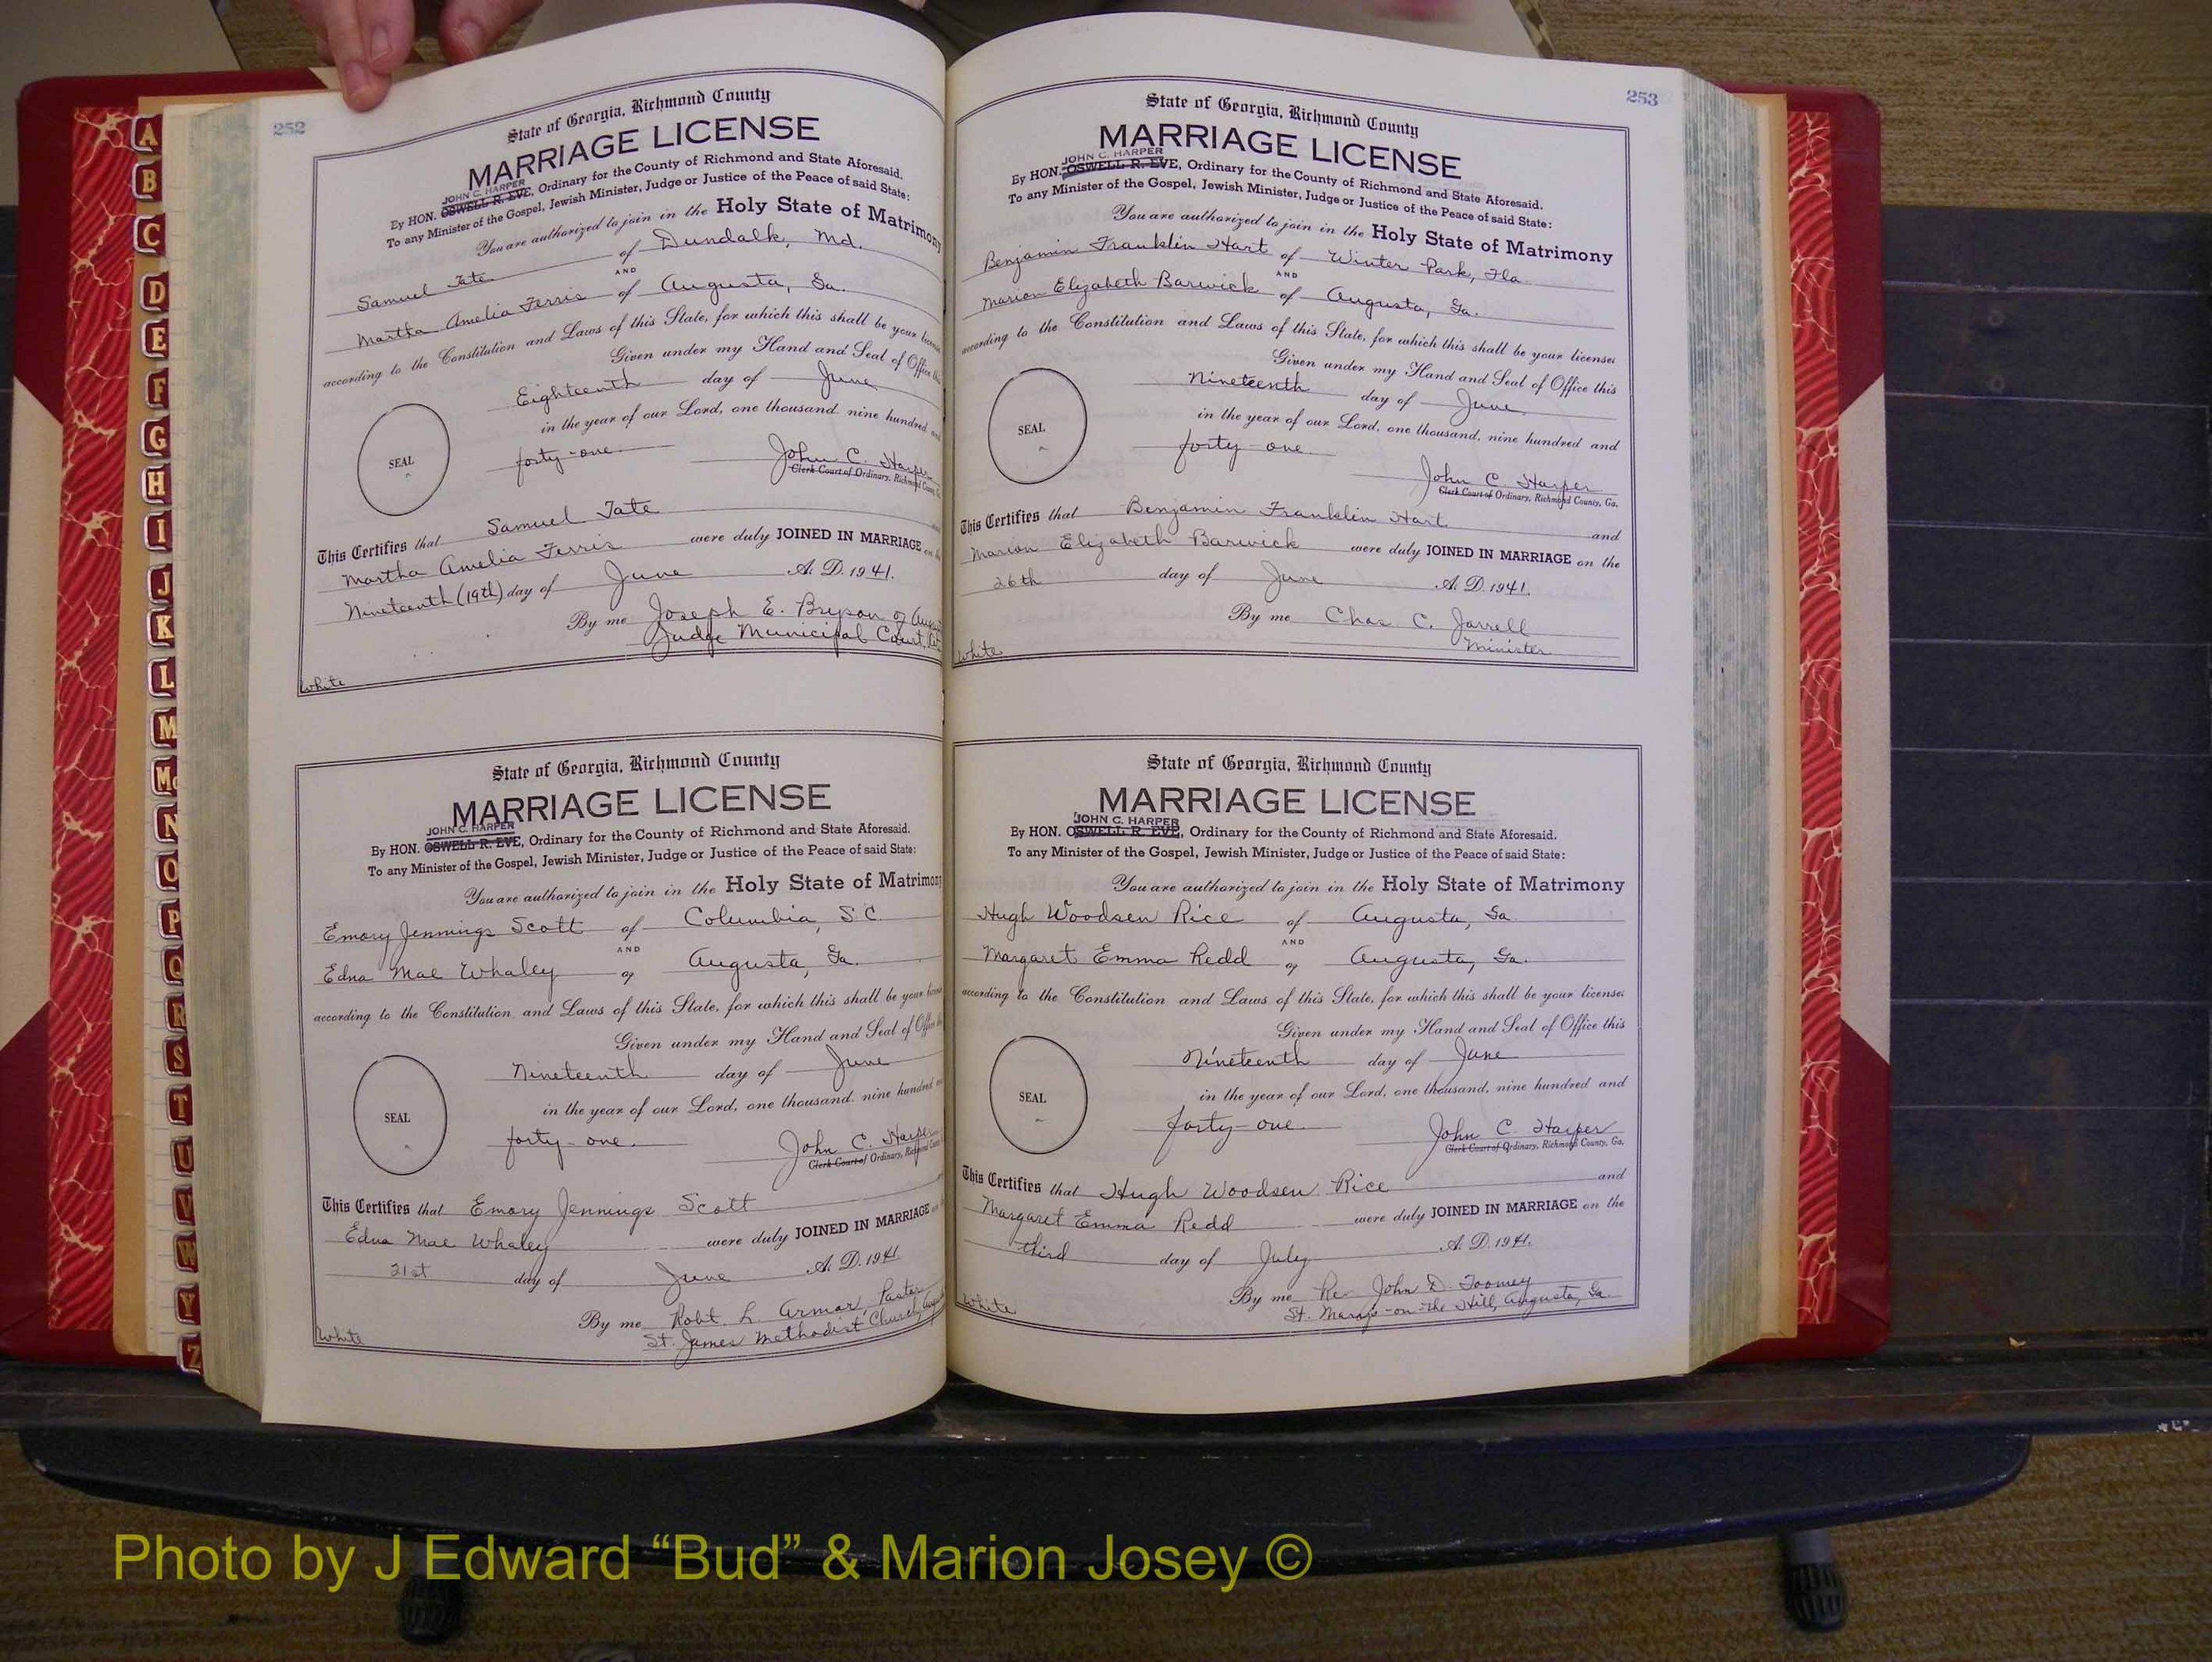 252
State of Georgia, Richmond County
MARRIAGE LICENSE
JOHN C. HARPER
By HON. OSWELL R. EVE, Ordinary for the County of Richmond and State Aforesaid.
To any Minister of the Gospel, Jewish Minister, Judge or Justice of the Peace of said State:
You are authorized to join in the Holy State of Matrimony
Samuel Tate of Dundalk, Md.
AND
Martha Amelia Ferris of Augusta, Ga.
according to the Constitution and Laws of this State, for which this shall be your license
Given under my Hand and Seal of Office
Eighteenth day of June
in the year of our Lord, one thousand, nine hundred
SEAL
forty-one. John C. Harper
Clerk Court of Ordinary, Richmond County
This Certifies that Samuel Tate
Martha Amelia Ferris were duly JOINED IN MARRIAGE on
Nineteenth (19th) day of June A. D. 1941.
By me Joseph E. Bryson of
Judge Municipal Court,
White
State of Georgia, Richmond County
MARRIAGE LICENSE
JOHN C. HARPER
By HON. OSWELL R. EVE, Ordinary for the County of Richmond and State Aforesaid.
To any Minister of the Gospel, Jewish Minister, Judge or Justice of the Peace of said State:
You are authorized to join in the Holy State of Matrimony
Emory Jennings Scott of Columbia, S.C.
AND
Edna Mae Whaley of Augusta, Ga.
according to the Constitution and Laws of this State, for which this shall be your license
Given under my Hand and Seal of Office
Nineteenth day of June
in the year of our Lord, one thousand, nine hundred
SEAL
forty-one. John C. Harper
Clerk Court of Ordinary, Richmond County
This Certifies that Emory Jennings Scott
Edna Mae Whaley were duly JOINED IN MARRIAGE
21st day of June A. D. 1941.
By me Robt. L. Armor, Pastor
St. James Methodist Church,
White
253
State of Georgia, Richmond County
MARRIAGE LICENSE
JOHN C. HARPER
By HON. OSWELL R. EVE, Ordinary for the County of Richmond and State Aforesaid.
To any Minister of the Gospel, Jewish Minister, Judge or Justice of the Peace of said State:
You are authorized to join in the Holy State of Matrimony
Benjamin Franklin Hart of Winter Park, Fla.
AND
Marion Elizabeth Barwick of Augusta, Ga.
according to the Constitution and Laws of this State, for which this shall be your license:
Given under my Hand and Seal of Office this
Nineteenth day of June
in the year of our Lord, one thousand, nine hundred and
SEAL
forty-one. John C. Harper
Clerk Court of Ordinary, Richmond County, Ga.
This Certifies that Benjamin Franklin Hart and
Marion Elizabeth Barwick were duly JOINED IN MARRIAGE on the
26th day of June A. D. 1941.
By me Chas. C. Jarrell
Minister
White
State of Georgia, Richmond County
MARRIAGE LICENSE
JOHN C. HARPER
By HON. OSWELL R. EVE, Ordinary for the County of Richmond and State Aforesaid.
To any Minister of the Gospel, Jewish Minister, Judge or Justice of the Peace of said State:
You are authorized to join in the Holy State of Matrimony
Hugh Woodsen Rice of Augusta, Ga.
AND
Margaret Emma Redd of Augusta, Ga.
according to the Constitution and Laws of this State, for which this shall be your license:
Given under my Hand and Seal of Office this
Nineteenth day of June
in the year of our Lord, one thousand, nine hundred and
SEAL
forty-one. John C. Harper
Clerk Court of Ordinary, Richmond County, Ga.
This Certifies that Hugh Woodsen Rice and
Margaret Emma Redd were duly JOINED IN MARRIAGE on the
third day of July A. D. 1941.
By me John D. Toomey
St. Mary's-on-the Hill, Augusta, Ga.
White
A
B
C
D
E
F
G
H
I
J
K
L
M
Mc
N
O
P
Q
R
S
T
U
V
W
Y
Z
Photo by J Edward “Bud” & Marion Josey ©